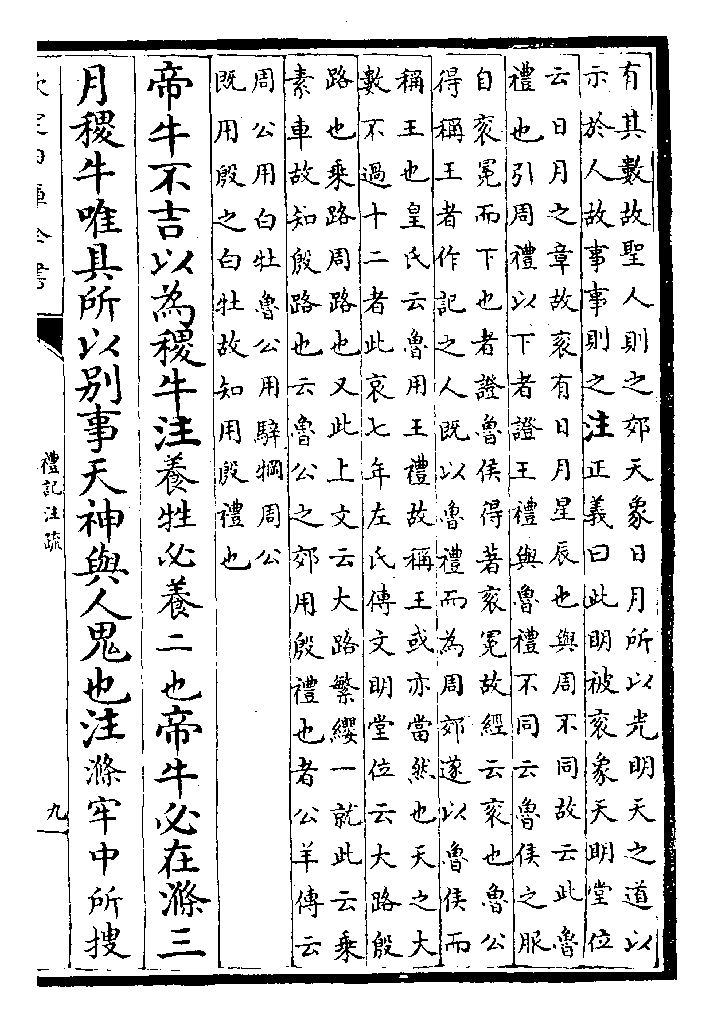 有其數故聖人則之郊天象日月所以光明天之道以
示於人故事事則之注正義曰此明被衮象天明堂位
云日月之章故衮有日月星辰也與周不同故云此魯
禮也引周禮以下者證王禮與魯禮不同云魯侯之服
自衮冕而下也者證魯侯得著衮冕故經云衮也魯公
得稱王者作記之人既以魯禮而為周郊遂以魯侯而
稱王也皇氏云魯用王禮故稱王或亦當然也天之大
數不過十二者此哀七年左氏傳文明堂位云大路殷
路也乘路周路也又此上文云大路繁纓一就此云乘
素車故知殷路也云魯公之郊用殷禮也者公羊傳云
周公用白牡魯公用騂犅周公
既用殷之白牡故知用殷禮也
帝牛不吉以為稷牛注養牲必養二也帝牛必在滌三
月稷牛唯具所以別事天神與人鬼也注滌牢中所搜
欽定四庫全書
禮記注疏
九